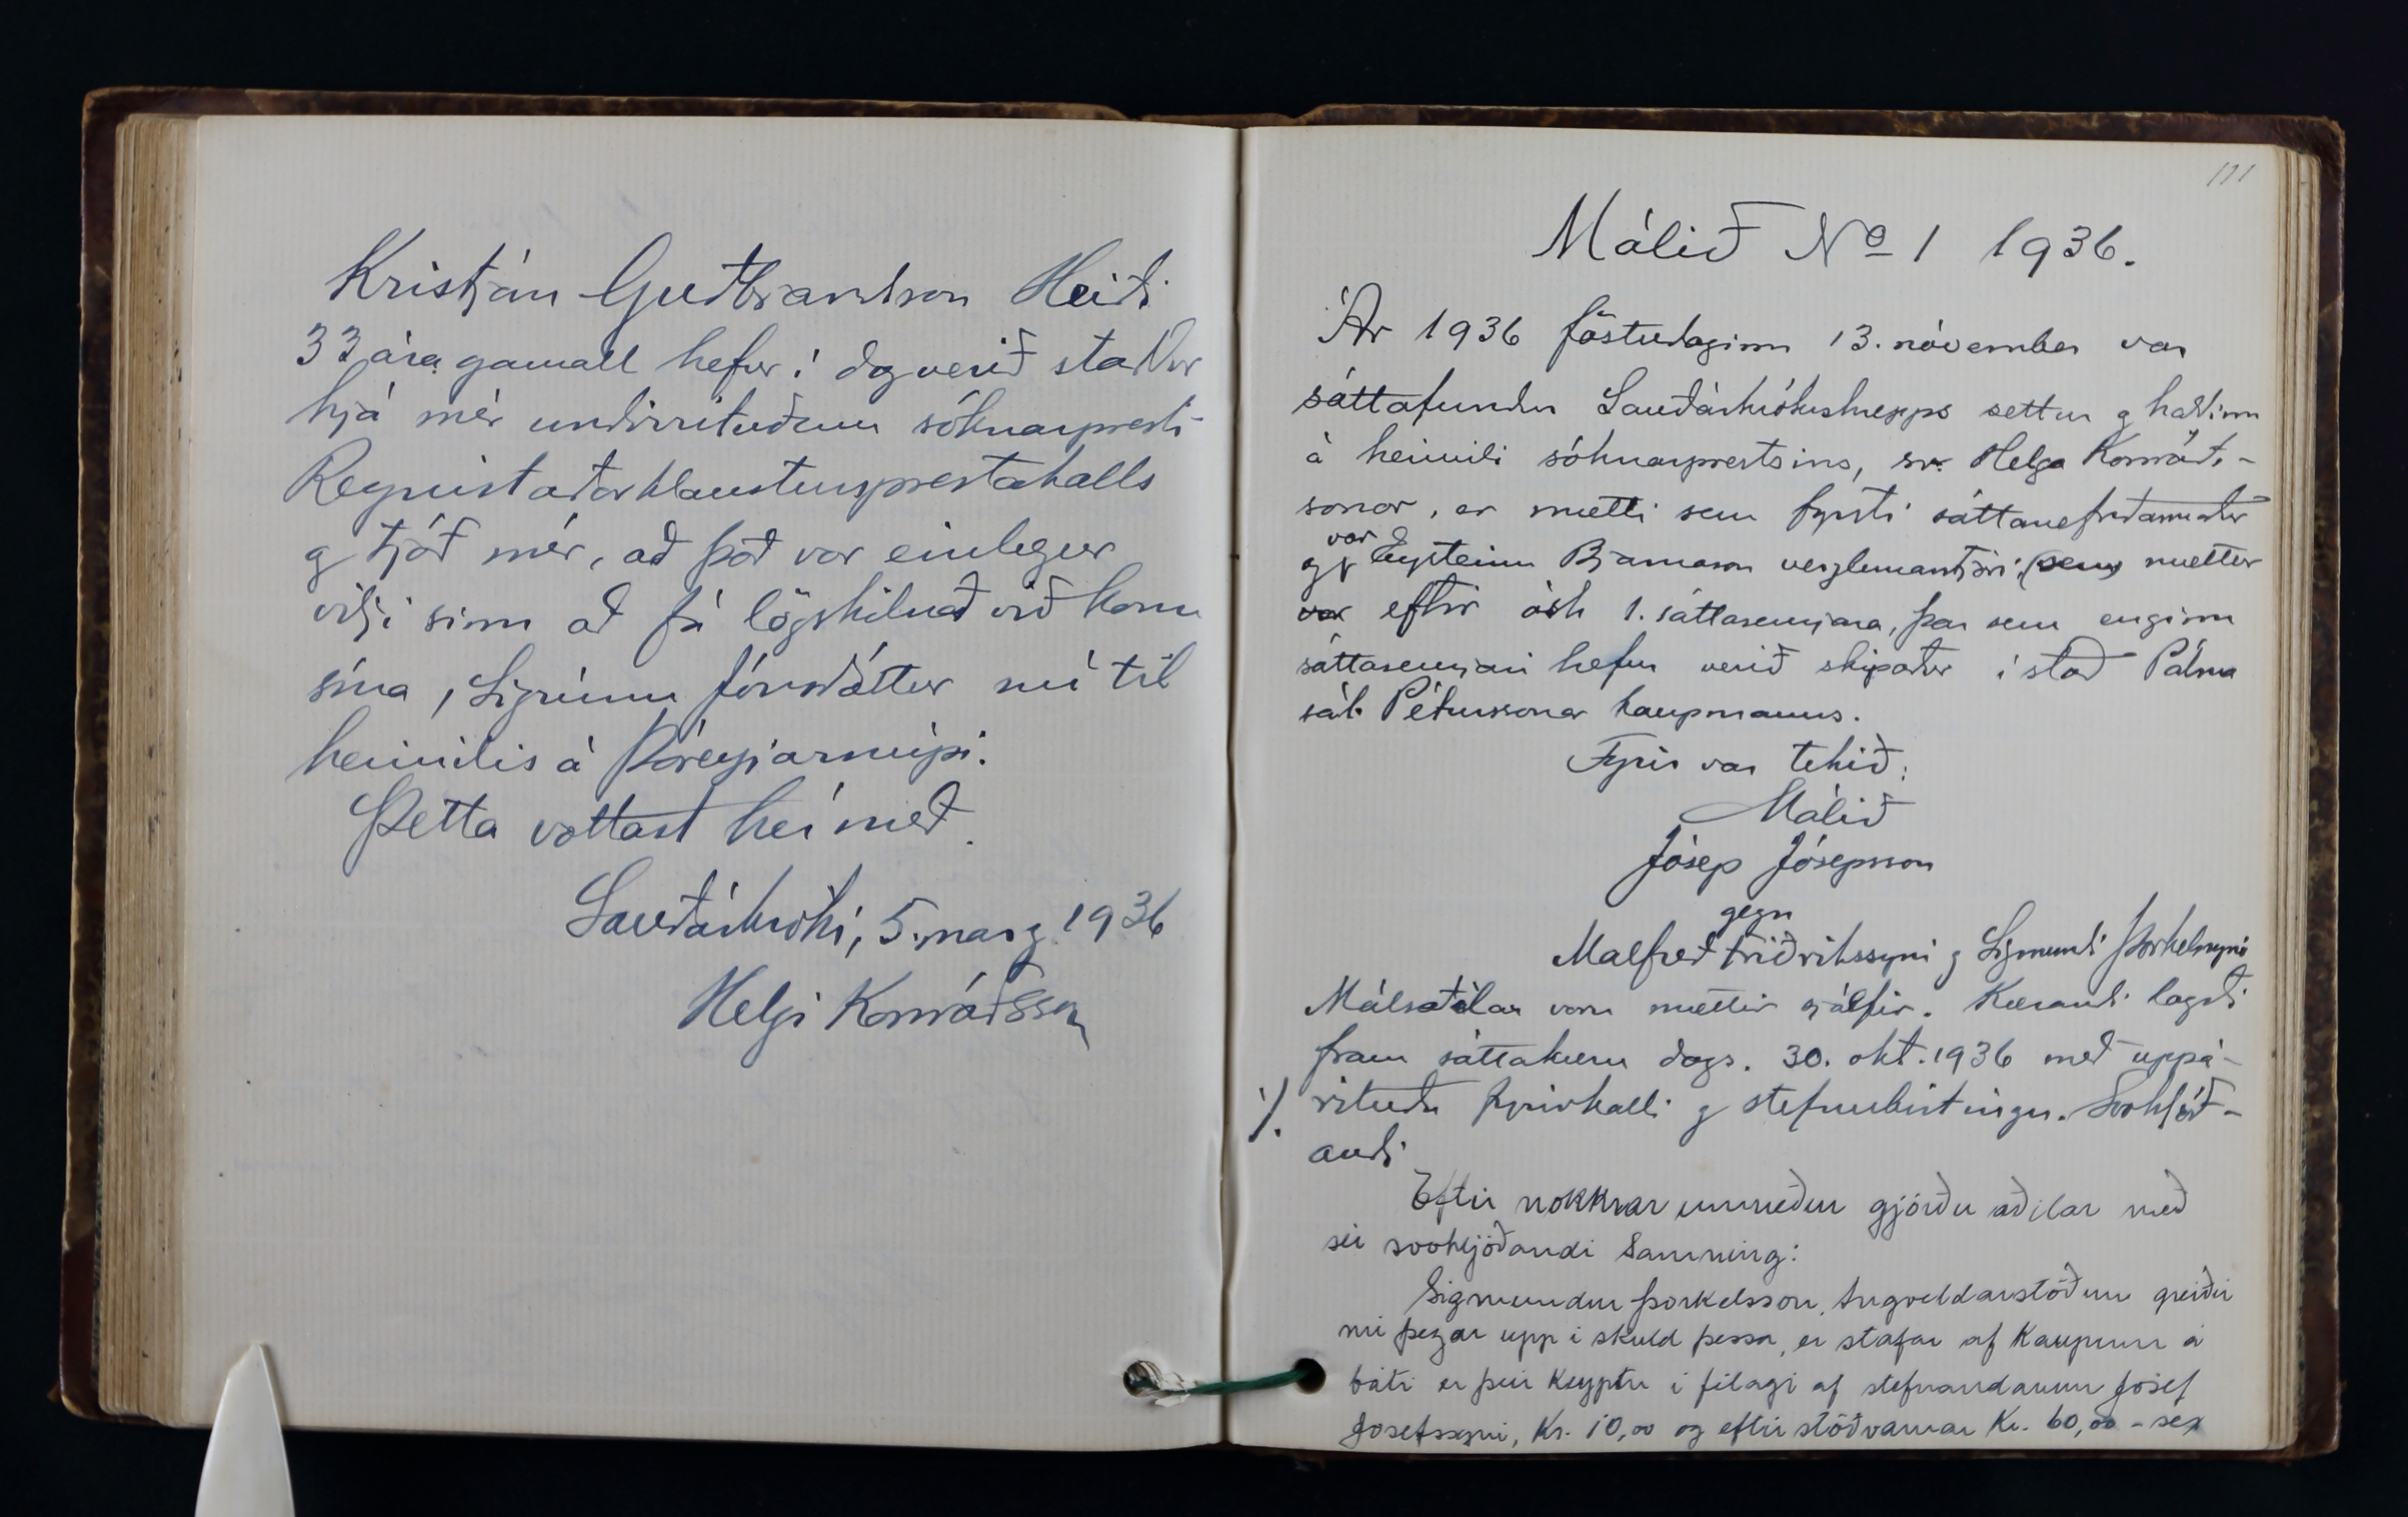 Kristján Guðbrandsson Heiði
33 ára gamall hefur í dag verið staddur
hjá mér undirrituðum sóknarpresti
Reynistaðarklaustursprestakalls
og tjáð mér, að það var einlægur
vilji sinn að fá lögskilnað við konu
sína, Sigrúnu Jónsdóttur nú til
heimilis á Þóreyjarnúpi.
Þetta vottast hér með.
Sauðárkróki, 5. marz 1936
Helgi Konráðsson
111
Málið No 1 1936.
Ár 1936 föstudaginn 13. nóvember var
sáttafundur Sauðárkrókshrepps settur og haldinn
á heimili sóknarprestsins, sr. Helga Konráðs-
sonar, er mætti sem fyrsti sáttanefndarmaður
og var Eysteinn Bjarnason verzlunarstjóri, (sem) mættur
var eftir ósk 1. sáttasemjara, þar sem enginn
sáttasemjari hefur verið skipaður í stað Pálma
sál. Péturssonar kaupmanns.
Fyrir var tekið:
Málið
Jósep Jósepsson
gegn
Malfreð Friðrikssyni og Sigmundi Þorkelssyni
Málsaðilar voru mættir sjálfir. Kærandi lagði
fram sáttakæru dags. 30. okt. 1936 með uppá-
·/. rituðu fyrirkalli og stefnubirtingu. Svohljóð-
andi
Eftir nokkrar umræður gjörðu aðilar með
sér svohljóðandi Samning:
Sigmundur Þorkelsson, Ingveldarstöðum greiðir
nú þegar upp í skuld þessa, er stafar af Kaupum á
báti er þeir Keyptu í félagi af stefnandanum Jósef
Josefssyni, Kr. 10,00 og eftirstöðvarnar Kr. 60,00 - sex